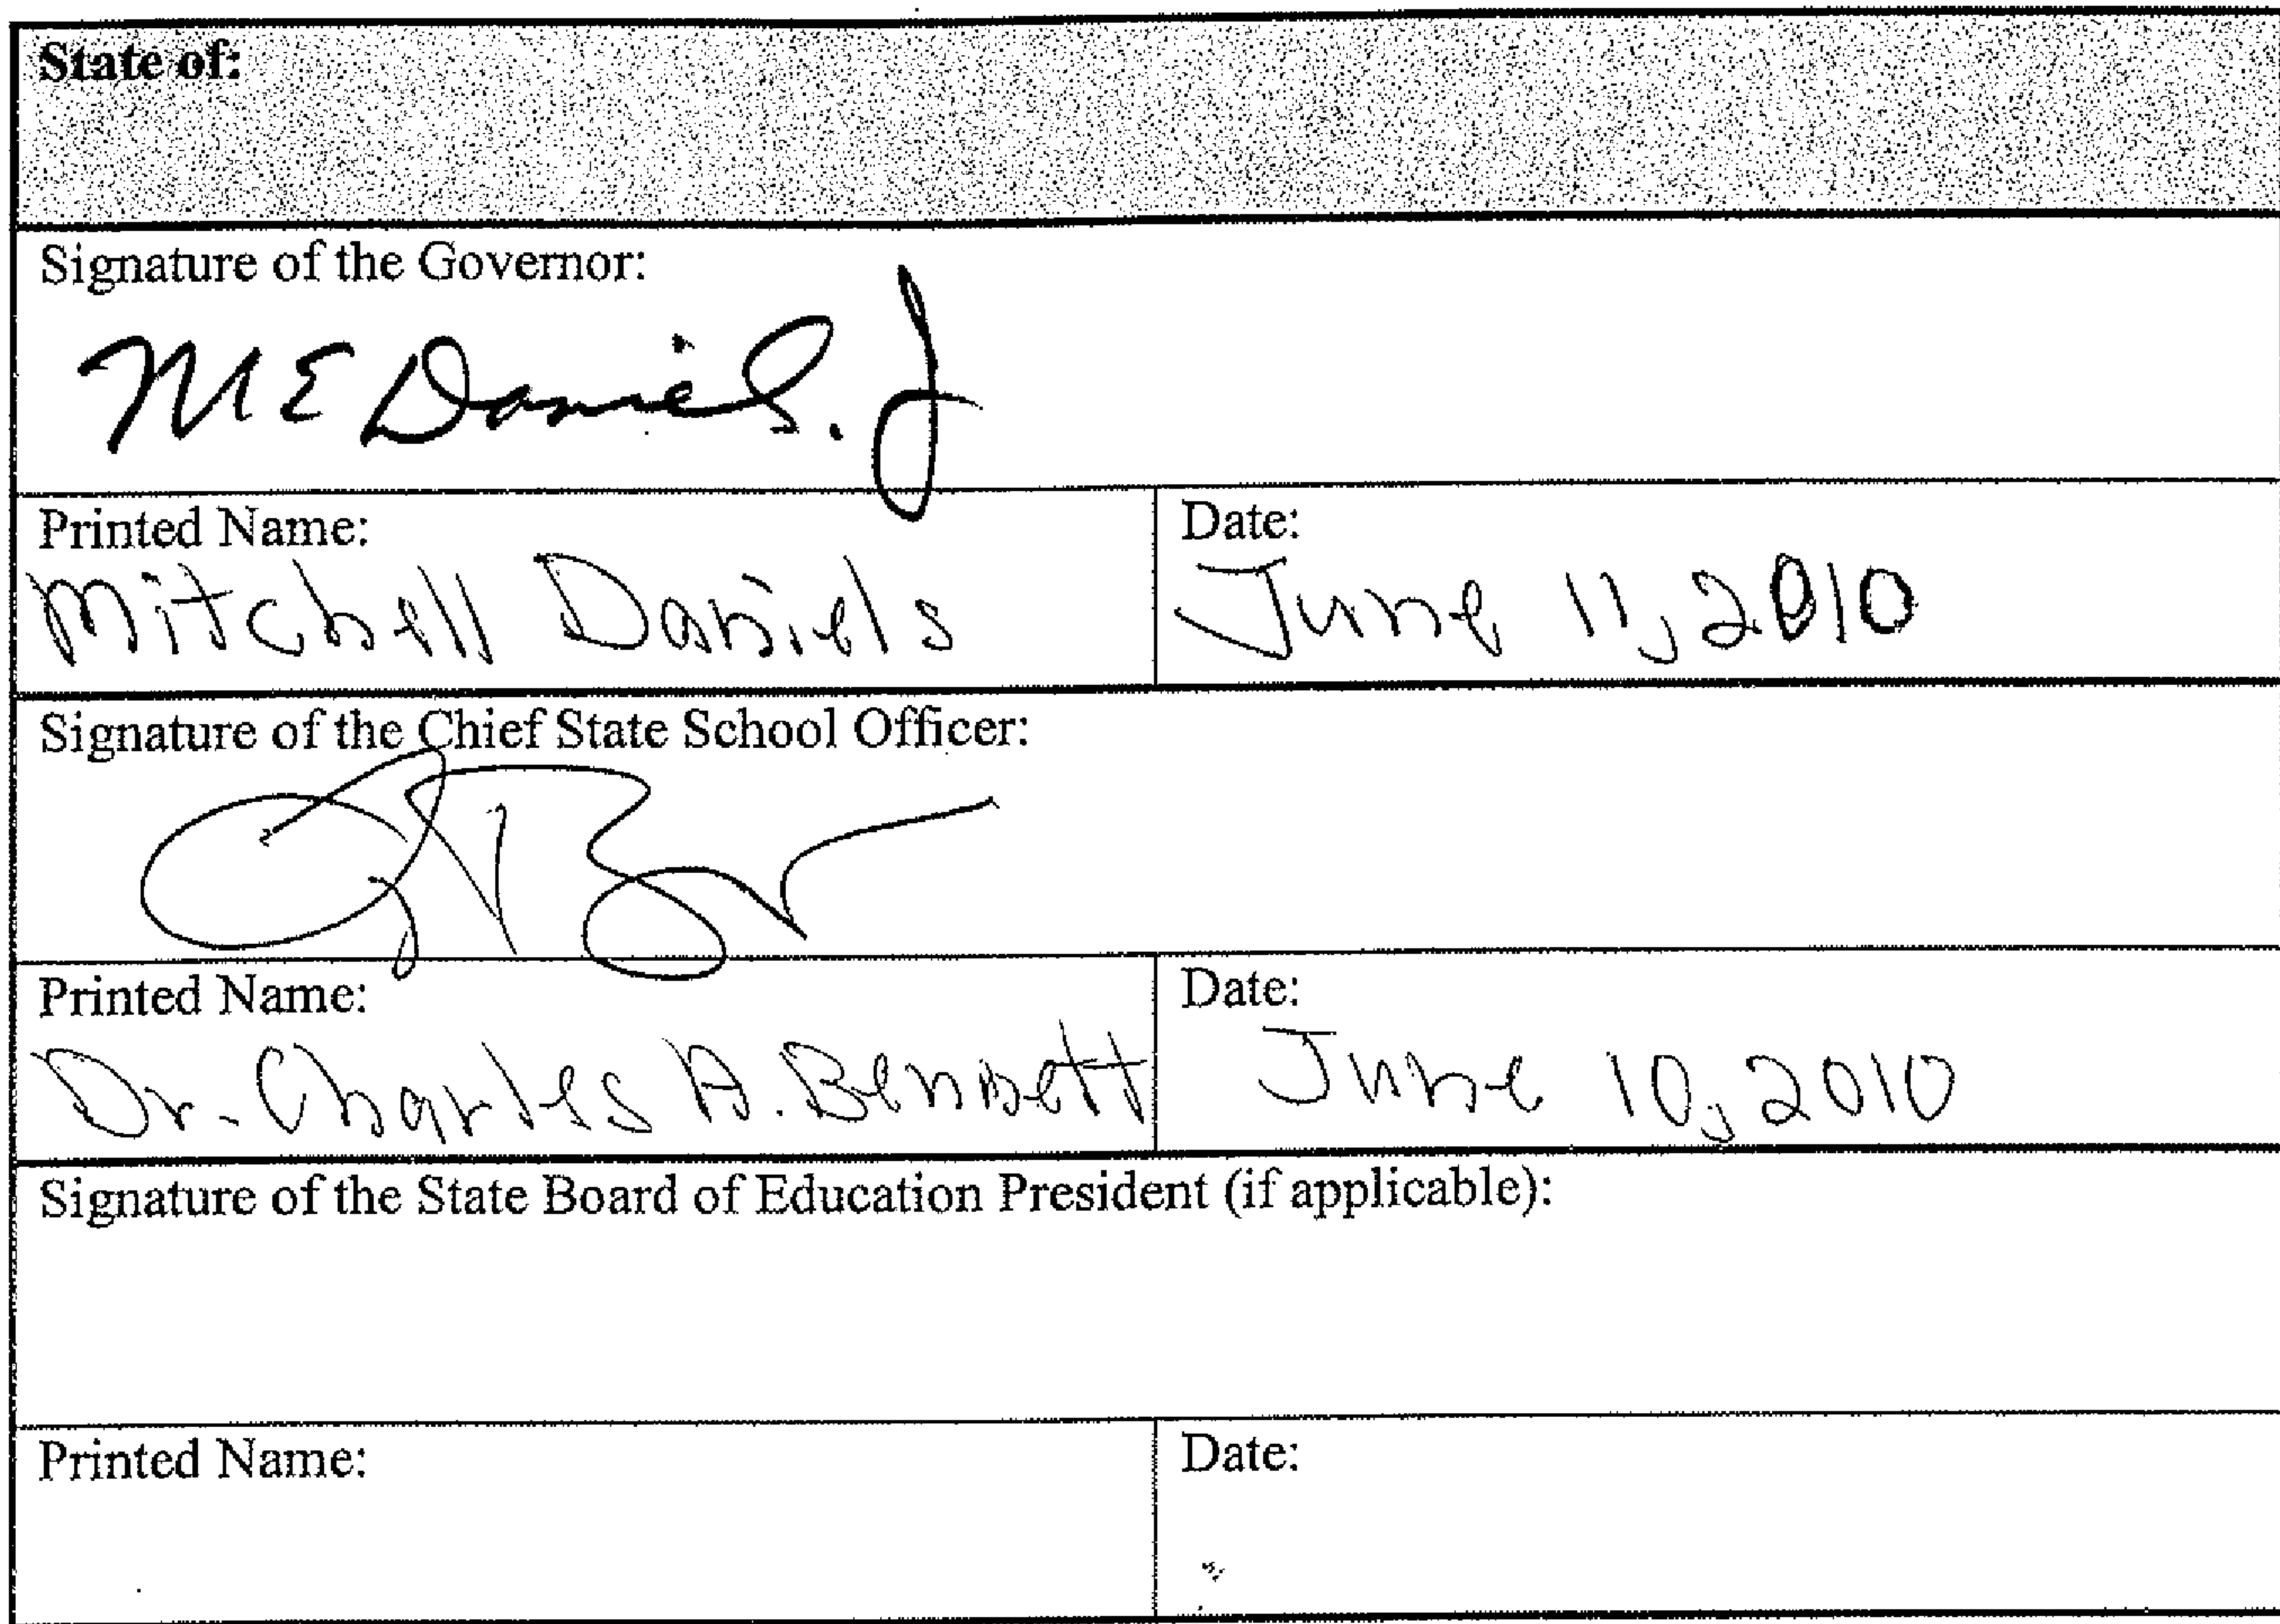 State of:
Signature of the Governor:
M E Daniels. J
Printed Name:
Mitchell Daniels
Date:
June 11, 2010
Signature of the Chief State School Officer:
Printed Name:
Dr. Charles A. Bennett
Date:
June 10, 2010
Signature of the State Board of Education President (if applicable):
Printed Name:
Date: